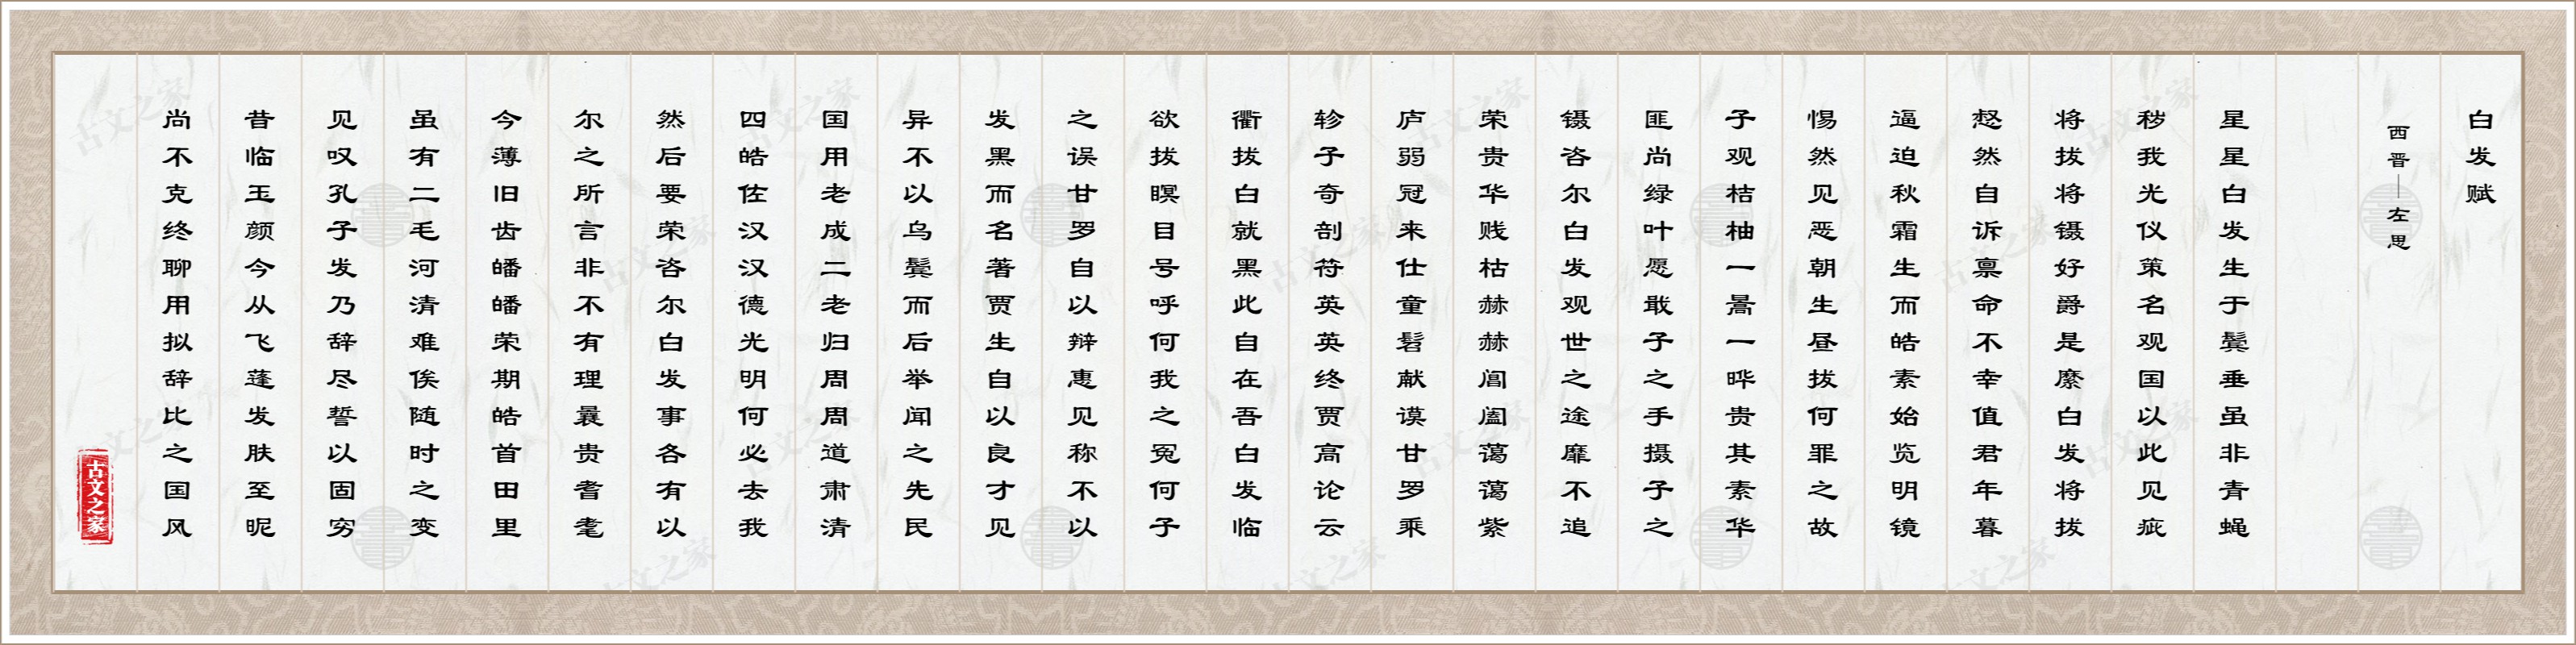 白发赋
西晋—左思
星星白发生于鬓垂虽非青蝇
秽我光仪策名观国以此见疵
将拔将镊好爵是縻白发将拔
惄然自诉禀命不幸值君年暮
逼迫秋霜生而皓素始览明镜
惕然见恶朝生昼拔何罪之故
子观桔柚一暠一晔贵其素华
匪尚绿叶愿敢子之手摄子之
镊咨尔白发观世之途靡不追
荣贵华贱枯赫赫阊阖蔼蔼紫
庐弱冠来仕童髫献谟甘罗乘
轸子奇剖符英英终贾高论云
衢拔白就黑此自在吾白发临
欲拔瞑目号呼何我之冤何子
之误甘罗自以辩惠见称不以
发黑而名著贾生自以良才见
异不以乌鬓而后举闻之先民
国用老成二老归周周道肃清
四皓佐汉汉德光明何必去我
然后要荣咨尔白发事各有以
尔之所言非不有理曩贵耆耄
今薄旧齿皤皤荣期皓首田里
虽有二毛河清难俟随时之变
见叹孔子发乃辞尽誓以固穷
昔临玉颜今从飞蓬发肤至昵
尚不克终聊用拟辞比之国风
古文之家